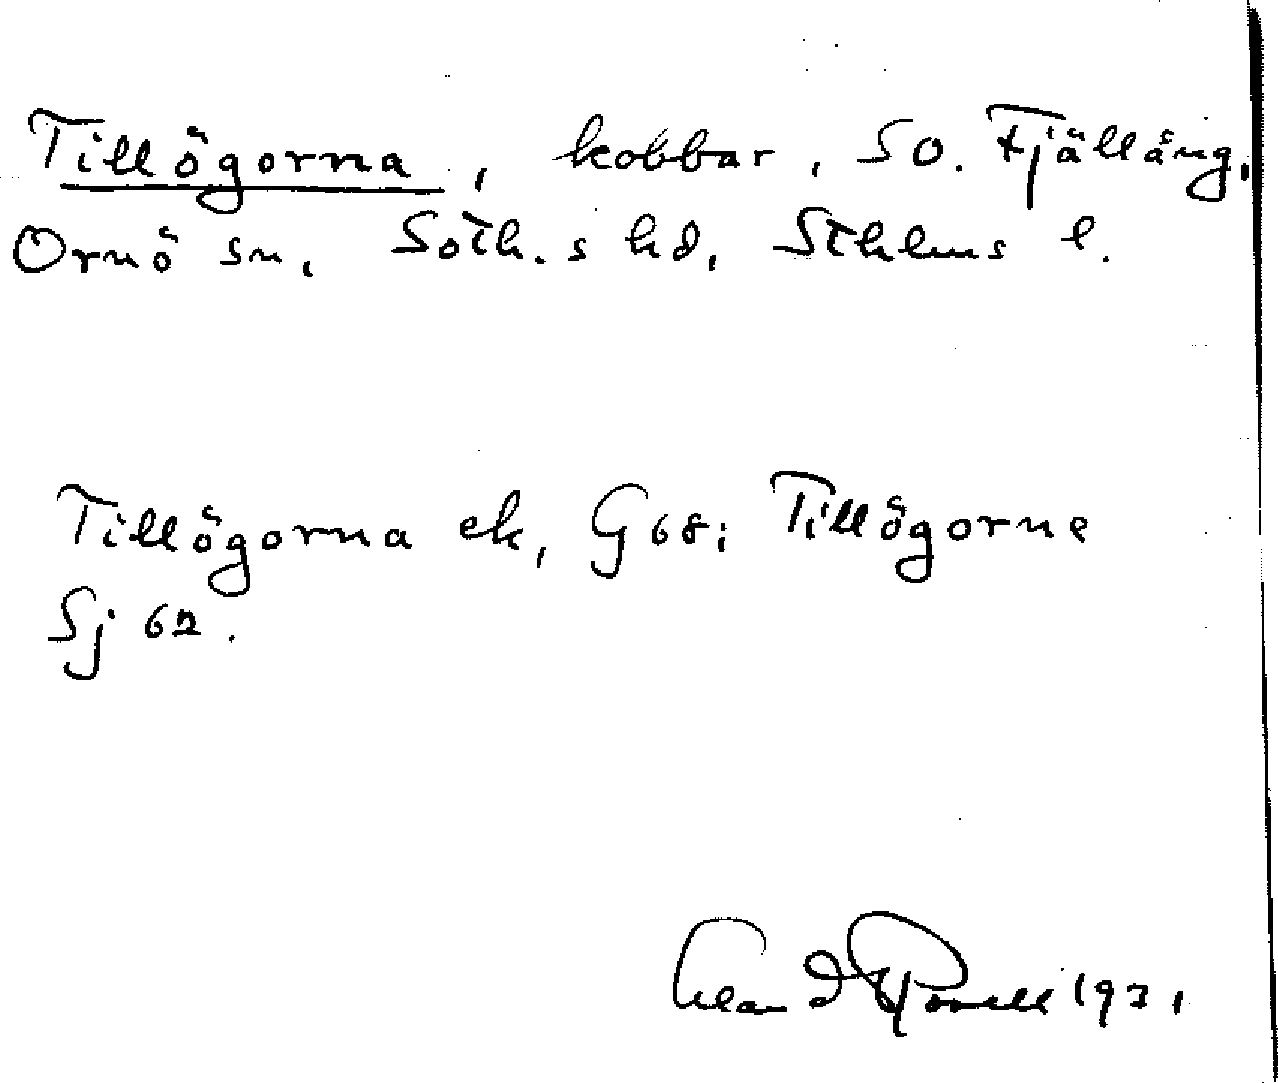 Tillögorna, kobbar, SO. Fjällång,
Ornö sn, Soth.s hd, Sthlms l.
Tillögorna ek, G68; Tillögorne
Sj 62.
1931